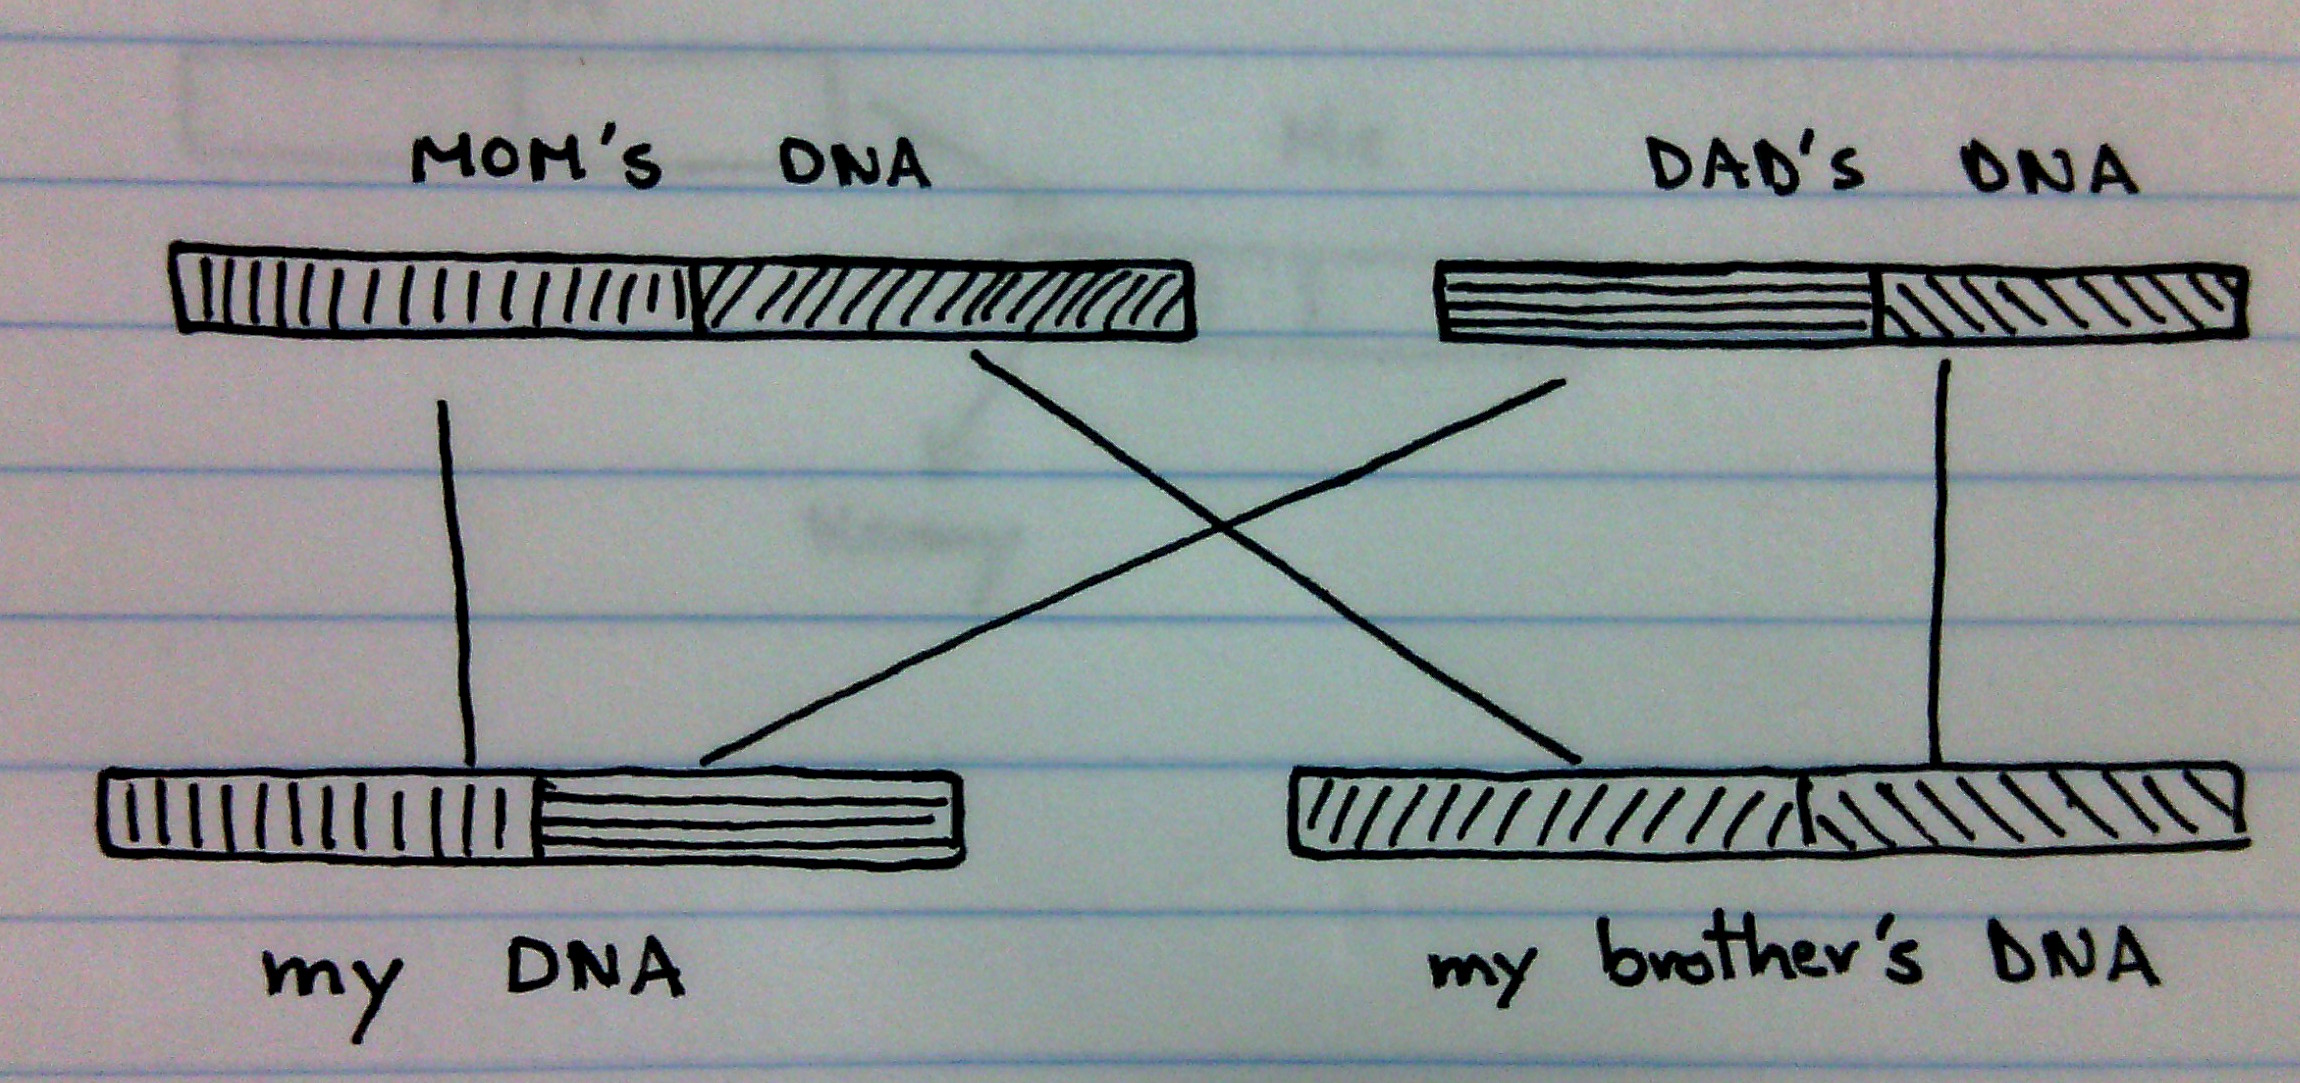 MOM's DNA
DAD's DNA
my DNA
my brother's DNA